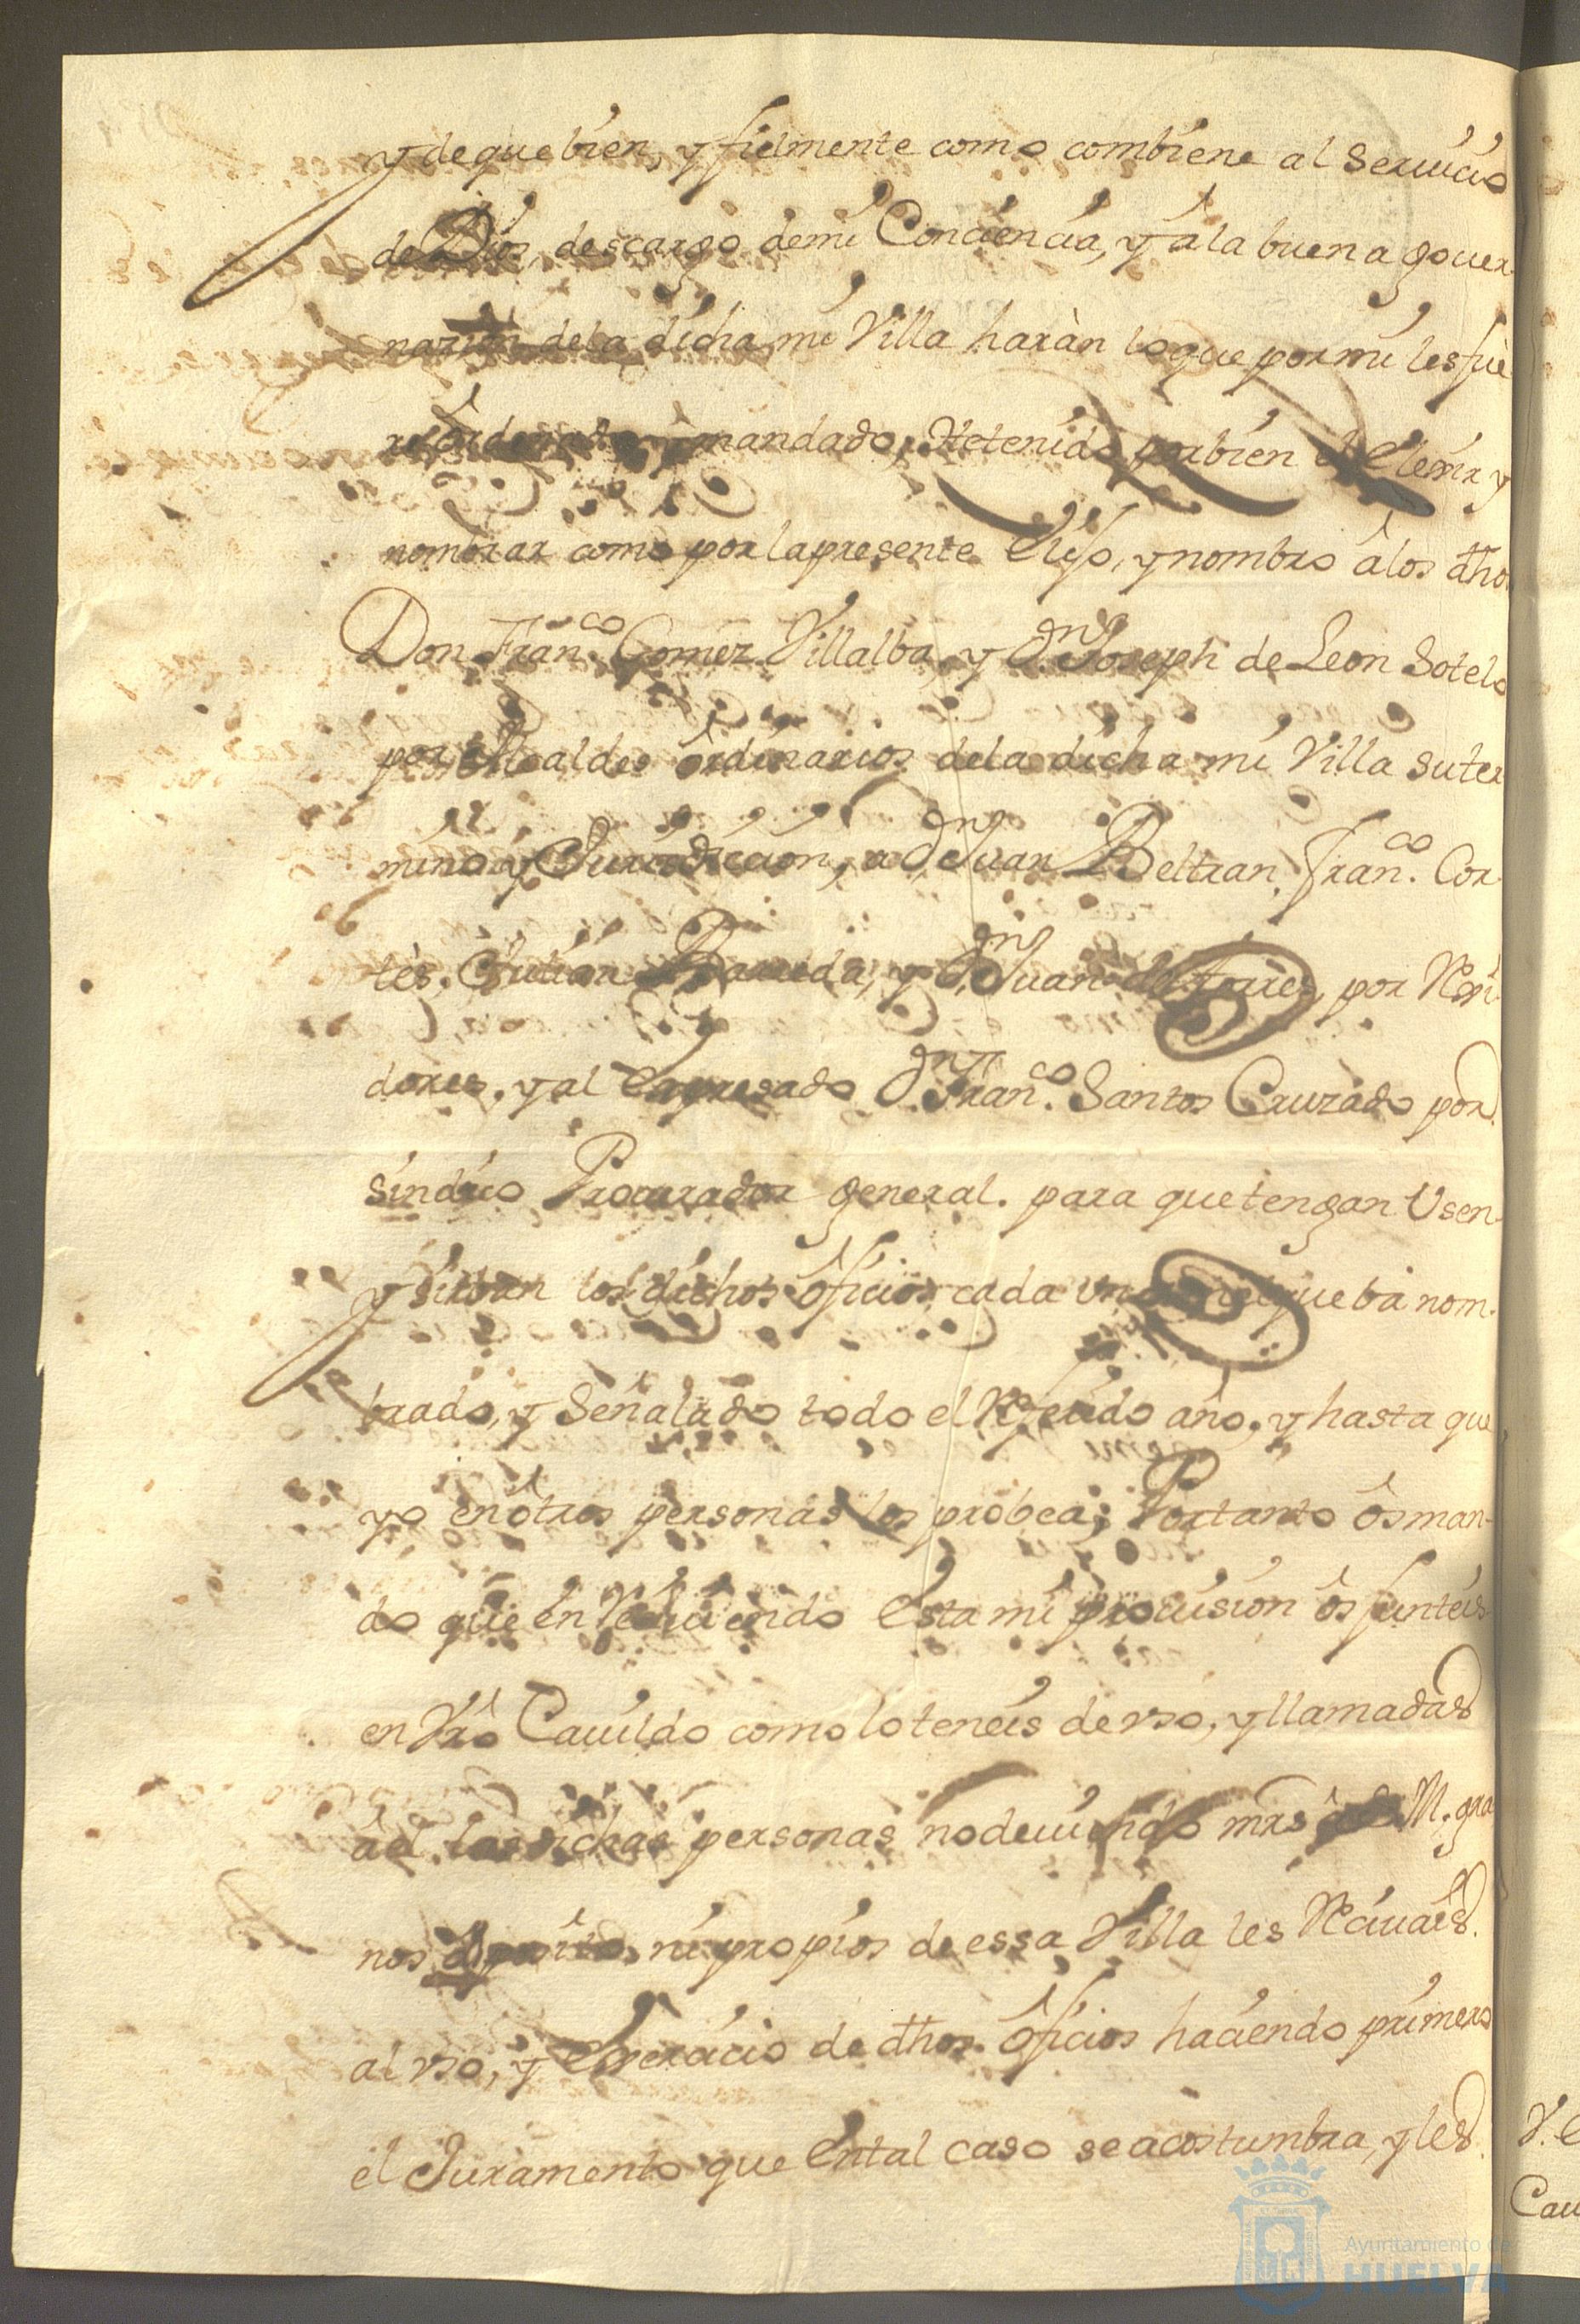 y de que bien, y fielmente como combiene al Seruicio
de Dios, descargo de mi Conciencia, y â la buena gouer-
nazion de la dicha mi Villa haràn lo que por mi les fue
re ordenado, y mandado, He tenido por bien de Elexir y
nombrar como por la presente Elijo, y nombro â los dhos
Don Franco. Gomez Villalba, y Dn. Joseph de Leon Sotelo
por Alcaldes ôrdinarios de la dicha mi Villa su ter
mino y Jurisdiccion, a Dn. Juan Beltran, Franco. Cor-
tès, Julian Baueda, y Dn. Juan de Torres, por Rexi-
dores, y al Expresado Dn. Franco. Santos Cruzado por
sindico Procurador general. para que tengan Usen
y sirban los dichos ôficios cada uno en el que bà nom-
brado, y Señalado todo el Referido año, y hasta que
yo en ôtros personas los probea; Por tanto ôs man-
do que en Reciuiendo Esta mi prouision ôs junteis
en Vrô Cauildo como lo teneis de vso, y llamadas
â el las dichas personas no deuiendo mrs â S. M. gra
nos â Positos, ni propios de essa Villa les Reciuaès
al vso, y Exercicio de dhos. ôficios haciendo primero
el Juramento que En tal caso se acostumbra, y les
V. E
Cau
Ayuntamiento de
HUELVA